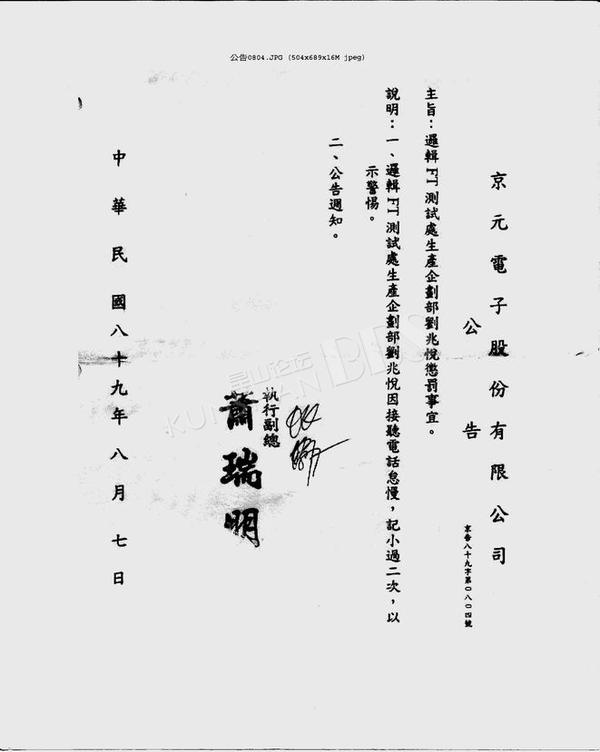 公告0804.JPG (504x689x16M jpeg)
京元電子股份有限公司
公告
京告八十九字第○八○四號
主旨：邏輯FT測試處生產企劃部劉兆悅懲罰事宜。
說明：一、邏輯FT測試處生產企劃部劉兆悅因接聽電話怠慢，記小過二次，以
示警惕。
二、公告週知。
執行副總
蕭瑞明
中華民國八十九年八月七日
昆山论坛
KUNSHAN BBS